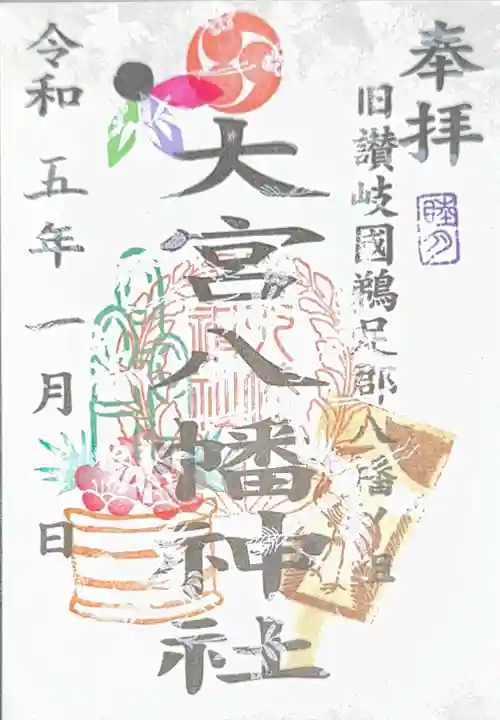 奉拝
睦月
旧讃岐國鵜足郡八幡ノ里
大宮八幡神社
令和五年一月 日